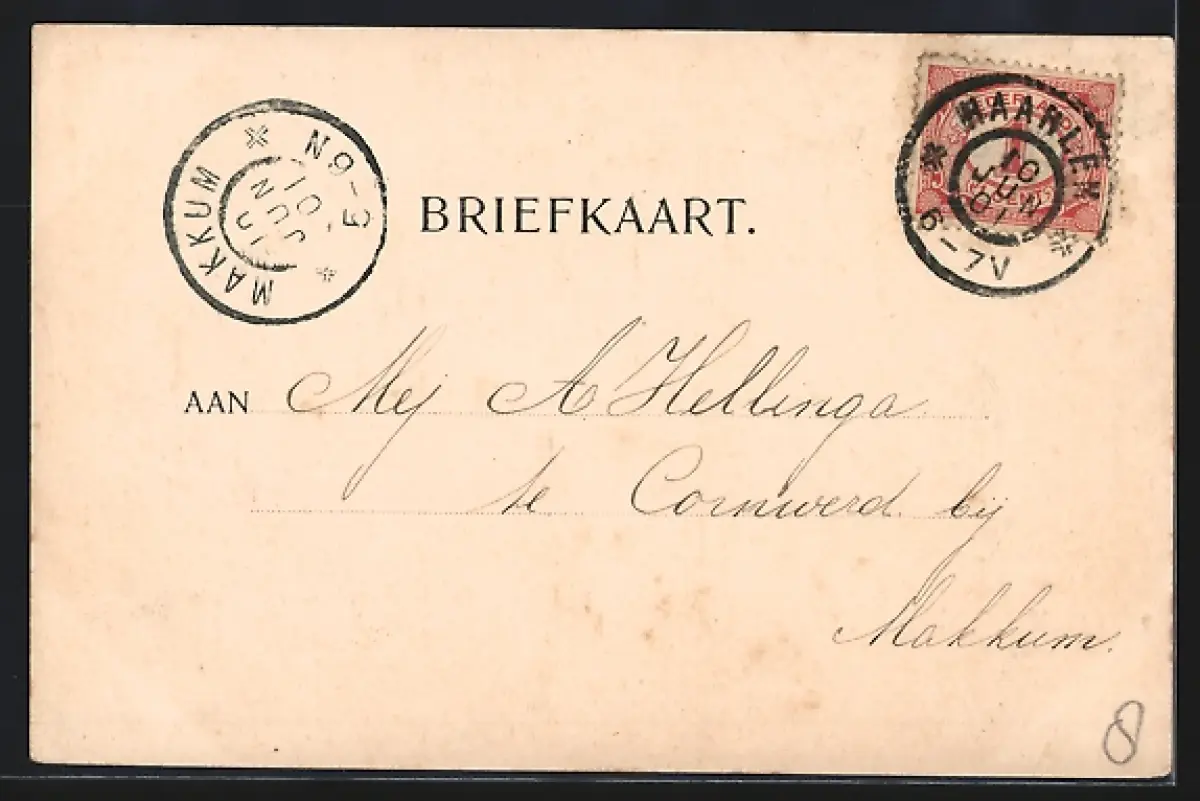 MAKKUM N 3-6
JUN 01
NEDERLAND
HAARLEM 6-7V
10 JUN 01
BRIEFKAART.
AAN Mej A Hellinga
te Cornwerd bij
Makkum.
8